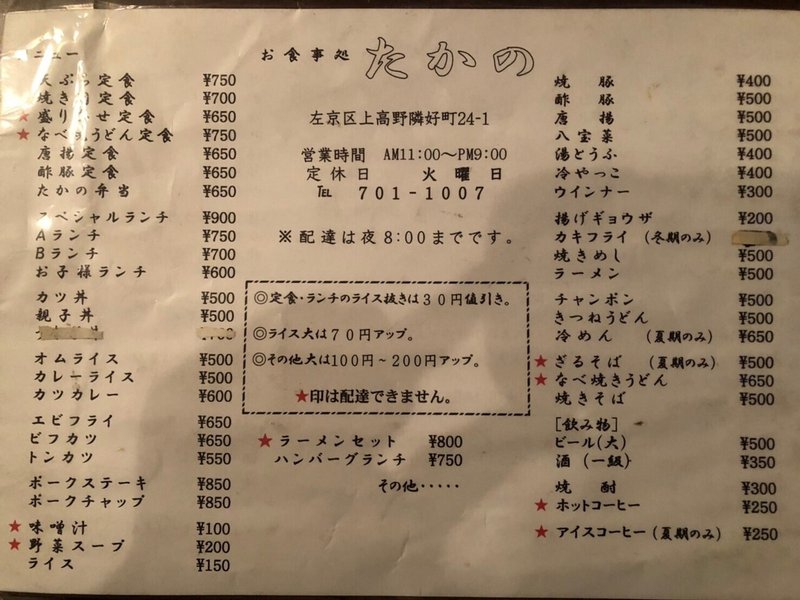 お食事処 たかの
左京区上高野隣好町24-1
営業時間 AM11:00～PM9:00
定休日 火曜日
℡ 701-1007
※配達は夜8:00までです。
◎定食・ランチのライス抜きは30円値引き。
◎ライス大は70円アップ。
◎その他大は100円～200円アップ。
★印は配達できません。
★ラーメンセット ¥800
ハンバーグランチ ¥750
その他・・・・・
ニュー
天ぷら定食 ¥750
焼き肉定食 ¥700
★盛り合せ定食 ¥650
★なべ焼うどん定食 ¥750
唐揚定食 ¥650
酢豚定食 ¥650
たかの弁当 ¥650
スペシャルランチ ¥900
Aランチ ¥750
Bランチ ¥700
お子様ランチ ¥600
カツ丼 ¥500
親子丼 ¥500
オムライス ¥500
カレーライス ¥500
カツカレー ¥600
エビフライ ¥650
ビフカツ ¥650
トンカツ ¥550
ポークステーキ ¥850
ポークチャップ ¥850
★味噌汁 ¥100
★野菜スープ ¥200
ライス ¥150
焼豚 ¥400
酢豚 ¥500
唐揚 ¥500
八宝菜 ¥500
湯とうふ ¥400
冷やっこ ¥400
ウインナー ¥300
揚げギョウザ ¥200
カキフライ (冬期のみ)
焼きめし ¥500
ラーメン ¥500
チャンポン ¥500
きつねうどん ¥500
冷めん (夏期のみ) ¥650
★ざるそば (夏期のみ) ¥500
★なべ焼きうどん ¥650
焼きそば ¥500
[飲み物]
ビール(大) ¥500
酒(一級) ¥350
焼酎 ¥300
★ホットコーヒー ¥250
★アイスコーヒー(夏期のみ) ¥250